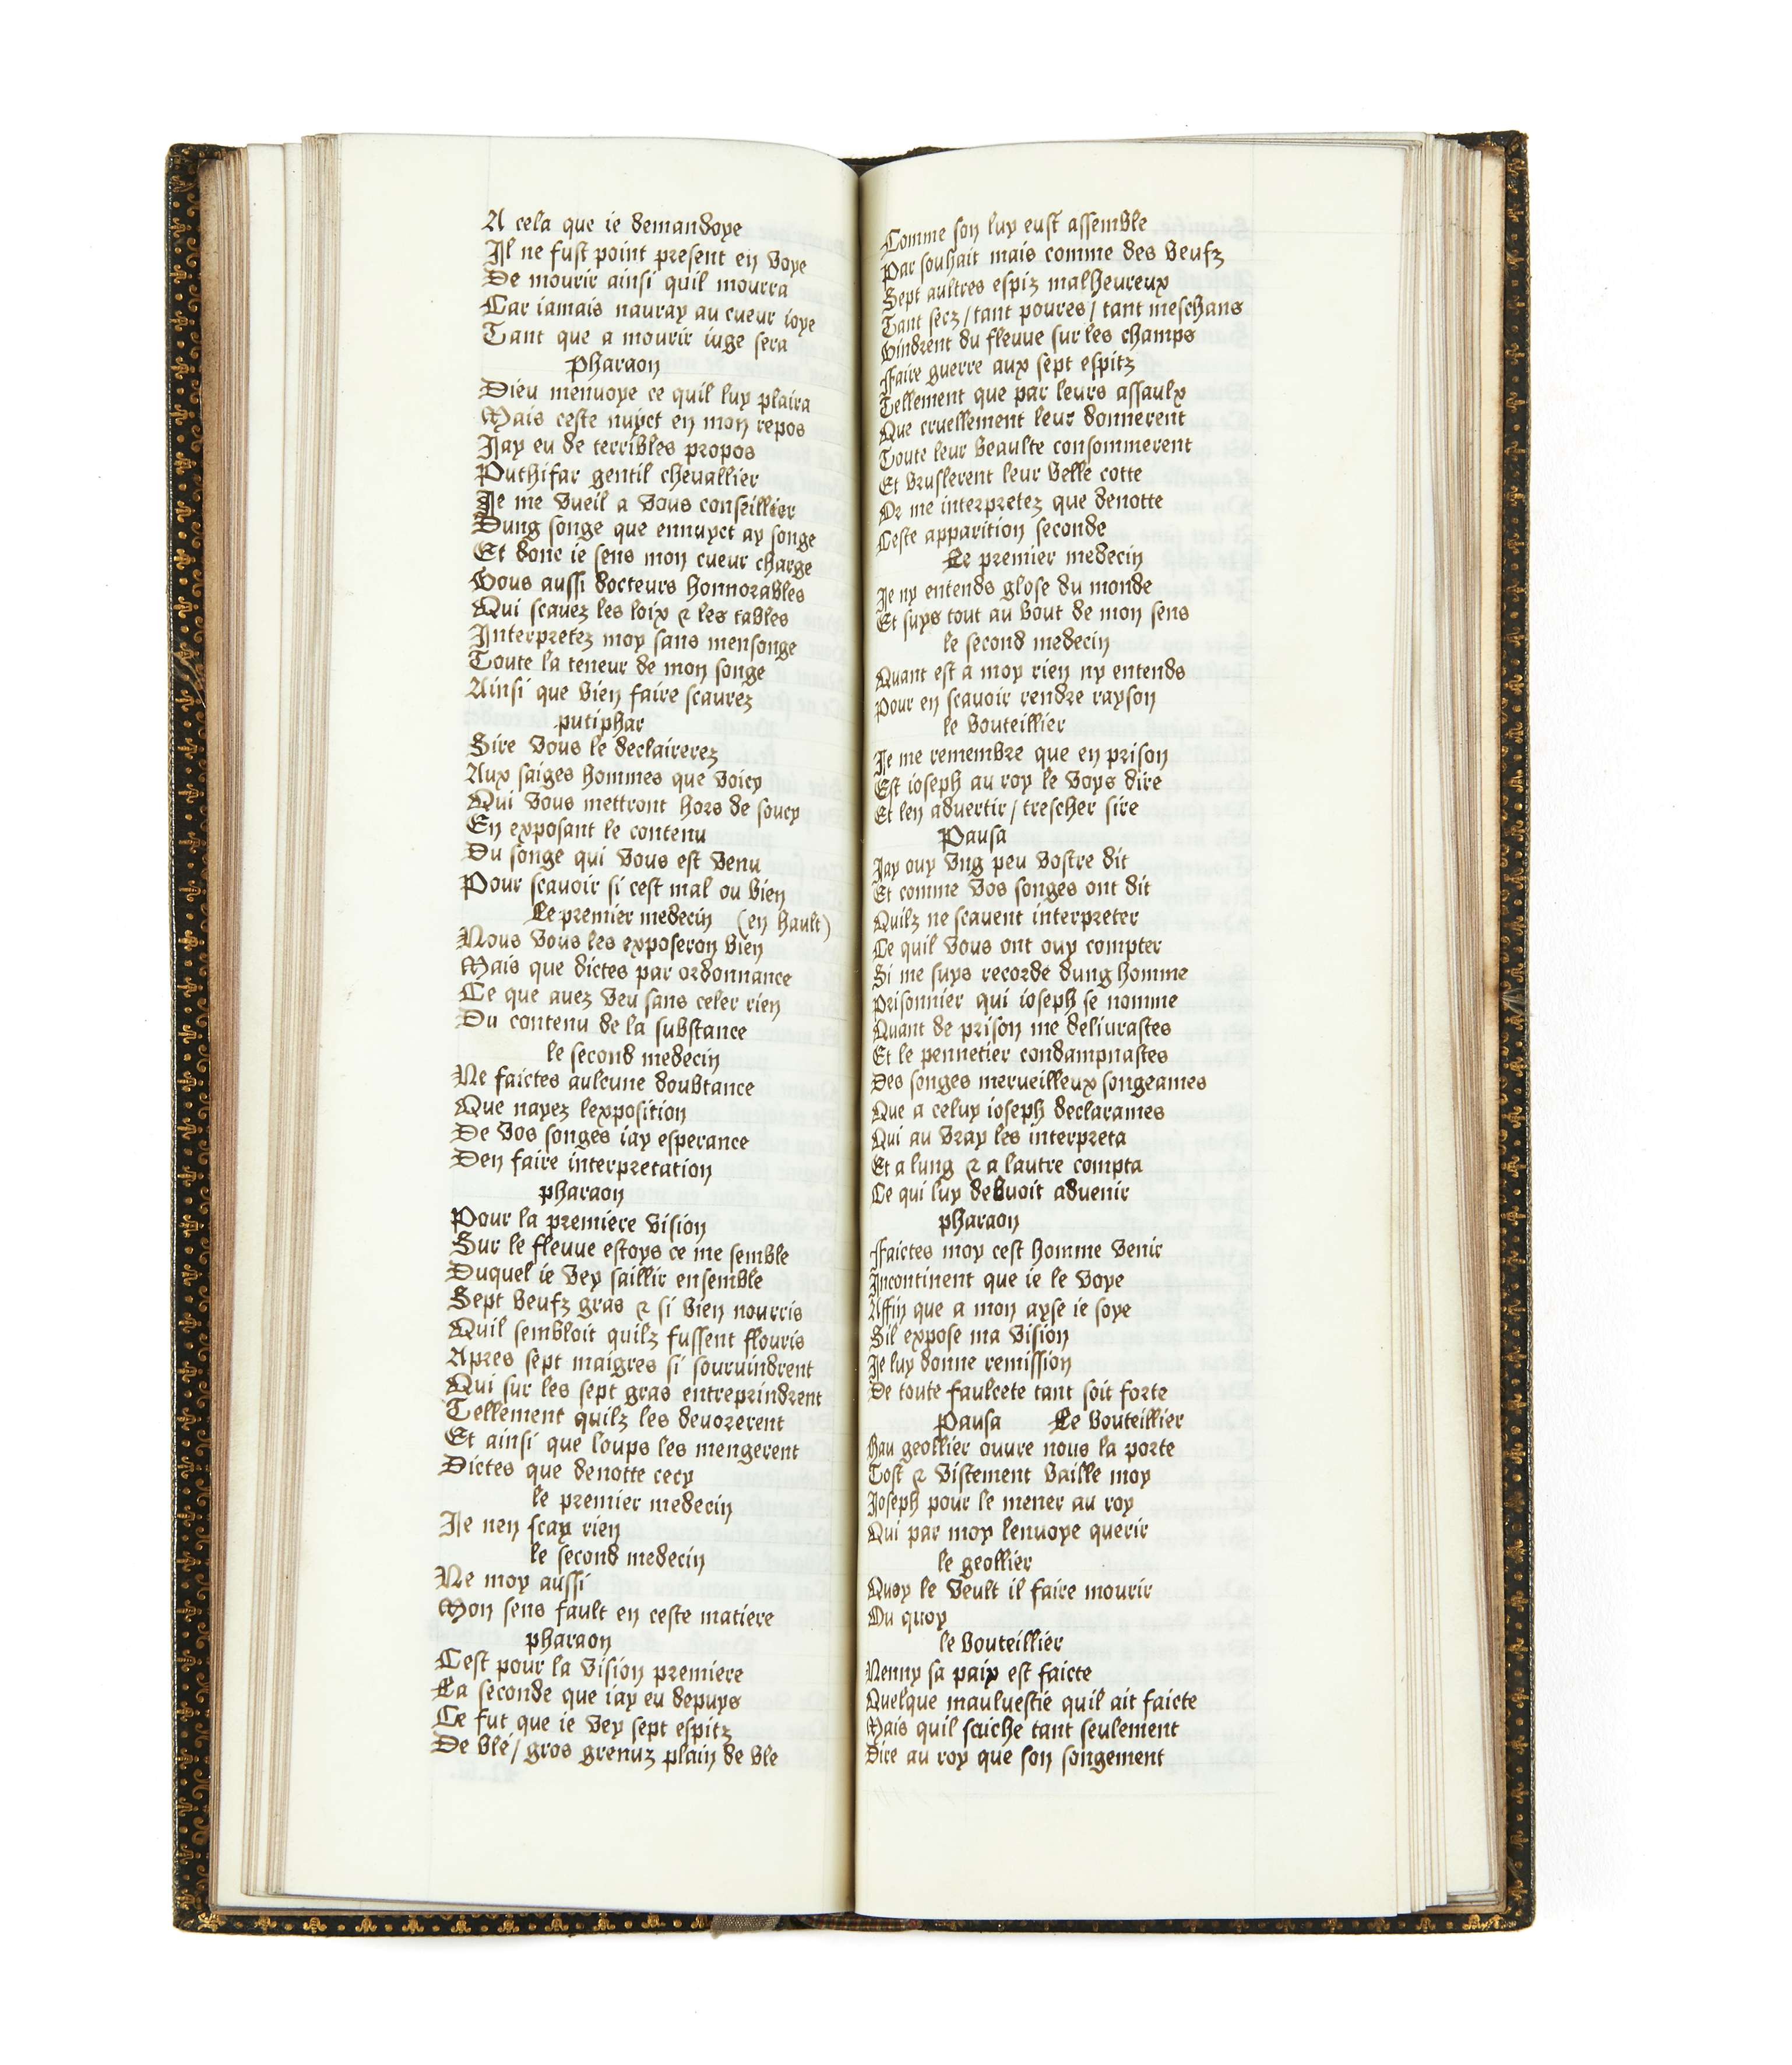 A cela que ie demandoye
Il ne fust point present en voye
De mourir ainsi quil mourra
Car iamais nauray au cueur ioye
Tant que a mourir iuge sera
Pharaon
Dieu menuoye ce quil luy plaira
Mais ceste nuyct en mon repos
Jay eu de terribles propos
Puthifar gentil cheuallier
Je me vueil a vous conseillier
Dung songe que ennuyct ay songe
Et donc ie sens mon cueur charge
Vous aussi docteurs honnorables
Qui scauez les loix & les tables
Interpretez moy sans mensonge
Toute la teneur de mon songe
Ainsi que bien faire scaurez
putiphar
Sire vous le declairerez
Aux saiges hommes que voicy
Qui vous mettront hors de soucy
En exposant le contenu
Du songe qui vous est venu
Pour scauoir si cest mal ou bien
Le premier medecin (en hault)
Nous vous les exposeron bien
Mais que dictes par ordonnance
Ce que auez veu sans celer rien
Du contenu de la substance
le second medecin
Ne faictes aulcune doubtance
Que nayez lexposition
De vos songes iay esperance
Den faire interpretation
pharaon
Pour la premiere vision
Sur le fleuue estoys ce me semble
Duquel ie vey saillir ensemble
Sept beufz gras & si bien nourris
Quil sembloit quilz fussent flouris
Apres sept maigres si souruindrent
Qui sur les sept gras entreprindrent
Tellement quilz les deuorerent
Et ainsi que loups les mengerent
Dictes que denotte cecy
le premier medecin
Je nen scay rien
le second medecin
Ne moy aussi
Mon sens fault en ceste matiere
pharaon
Cest pour la vision premiere
La seconde que iay eu depuys
Ce fut que ie vey sept espitz
De blé / gros grenuz plain de ble
Comme son luy eust assemble
Par souhait mais comme des beufz
Sept aultres espiz malheureux
Tant secz / tant poures / tant meschans
Vindrent du fleuue sur les champs
Ffaire guerre aux sept espitz
Tellement que par leurs assaulx
Que cruellement leur donnerent
Toute leur beaulte consommerent
Et bruslerent leur belle cotte
Or me interpretez que denotte
Ceste apparition seconde
Le premier medecin
Je ny entends glose du monde
Et suys tout au bout de mon sens
le second medecin
Quant est a moy rien ny entends
Pour en scauoir rendre rayson
le bouteillier
Je me remembre que en prison
Est ioseph au roy le voys dire
Et len aduertir / trescher sire
Pausa
Jay ouy vng peu vostre dit
Et comme vos songes ont dit
Quilz ne scauent interpreter
Ce quil vous ont ouy compter
Si me suys recorde dung homme
Prisonnier qui ioseph se nomme
Quant de prison me deliurastes
Et le pennetier condampnastes
Des songes merueilleux songeames
Que a celuy ioseph declarames
Qui au vray les interpreta
Et a lung & a lautre compta
Ce qui luy debuoit aduenir
pharaon
Ffaictes moy cest homme venir
Incontinent que ie le voye
Affin que a mon ayse ie soye
Sil expose ma vision
Je luy donne remission
De toute faulcete tant soit forte
Pausa Le bouteillier
Hau geollier ouure nous la porte
Tost & vistement baille moy
Joseph pour le mener au roy
Qui par moy lenuoye querir
le geollier
Quoy le veult il faire mourir
Ou quoy
le bouteillier
Nenny sa paix est faicte
Quelque mauluestie quil ait faicte
Mais quil saiche tant seulement
Dire au roy que son songement